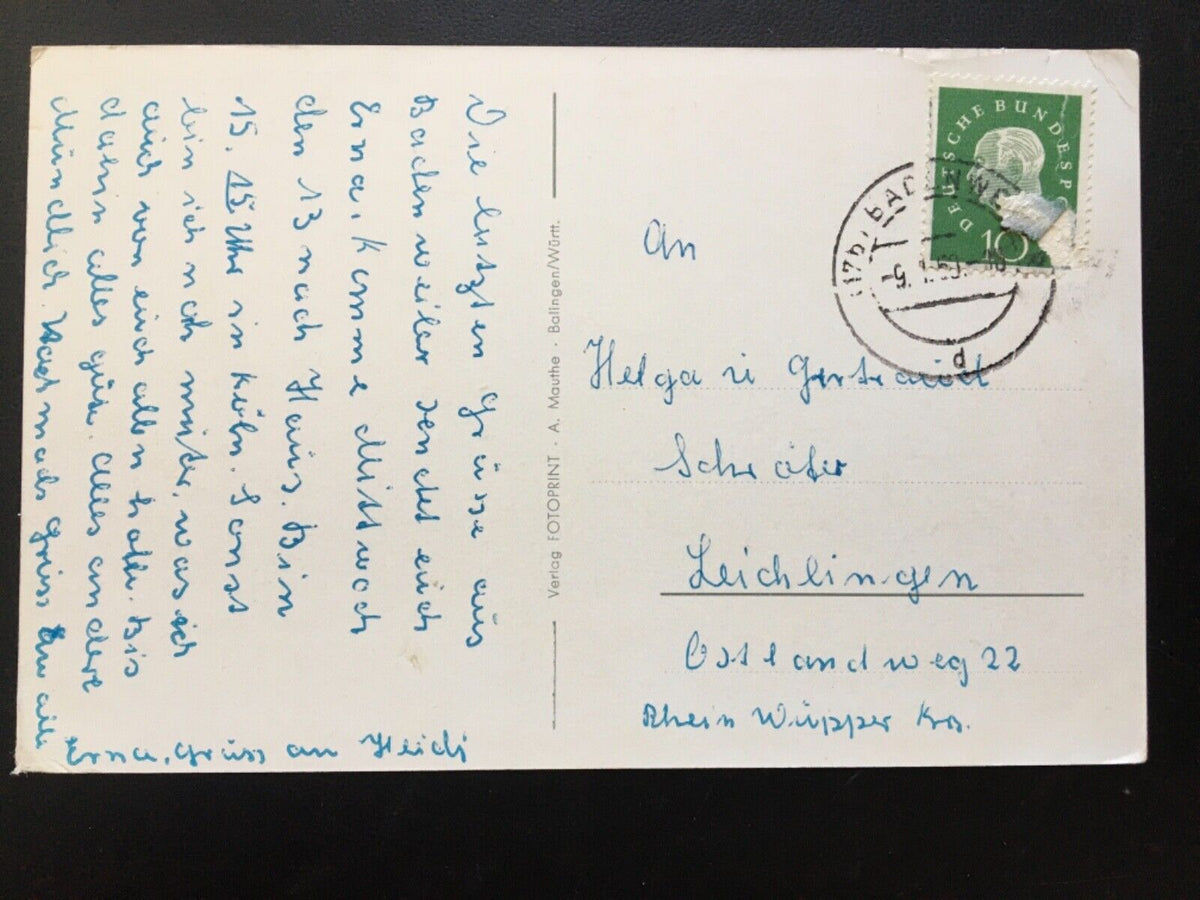 Die letzten Grüsse aus
Badenweiler sendet euch
Erna. Komme Mittwoch
den 13 nach Haus. Bin
15.15 Uhr in Köln. Sonst
bin ich noch munter, was ich
auch von euch allen hoffe. Bis
dahin alles gute. Alles andere
Mündlich. Nochmals Grüss Eu alle
Erna. Grüss an Heidi
Verlag FOTOPRINT · A. Mauthe · Balingen/Württ.
DEUTSCHE BUNDESP
10
(17b) BADENWE
-9.1.60.-18
p
An
Helga u Gertraud
Schräfer
Leichlingen
Ostlandweg 22
Rhein Wupper Krs.